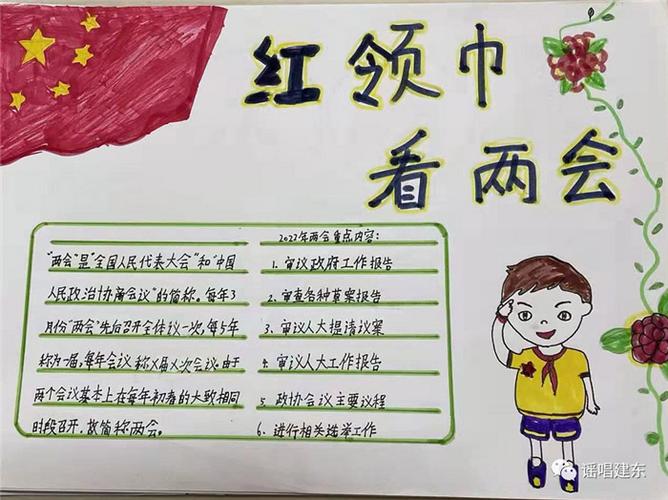 红领巾
看两会
“两会”是“全国人民代表大会”和“中国
人民政治协商会议”的简称。每年3
月份“两会”先后召开全体议一次，每5年
称为一届，每年会议称X届X次会议。由于
两个会议基本上在每年初春的大致相同
时段召开，故简称两会。
2022年两会重点内容：
1. 审议政府工作报告
2. 审查各种草案报告
3. 审议人大提请议案
4. 审议人大工作报告
5 政协会议主要议程
6. 进行相关选举工作
谣唱建东